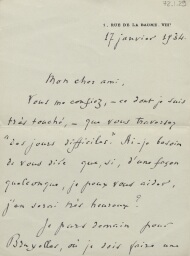 1, RUE DE LA BAUME. VIIIᵉ
17 janvier 1934.
Mon cher ami,
Vous me confiez, — ce dont je suis
très touché, — que vous traversez
"des jours difficiles." Ai-je besoin
de vous dire que, si, d'une façon
quelconque, je peux vous aider,
j'en serai très heureux?
Je pars demain pour
Bruxelles, où je dois faire une